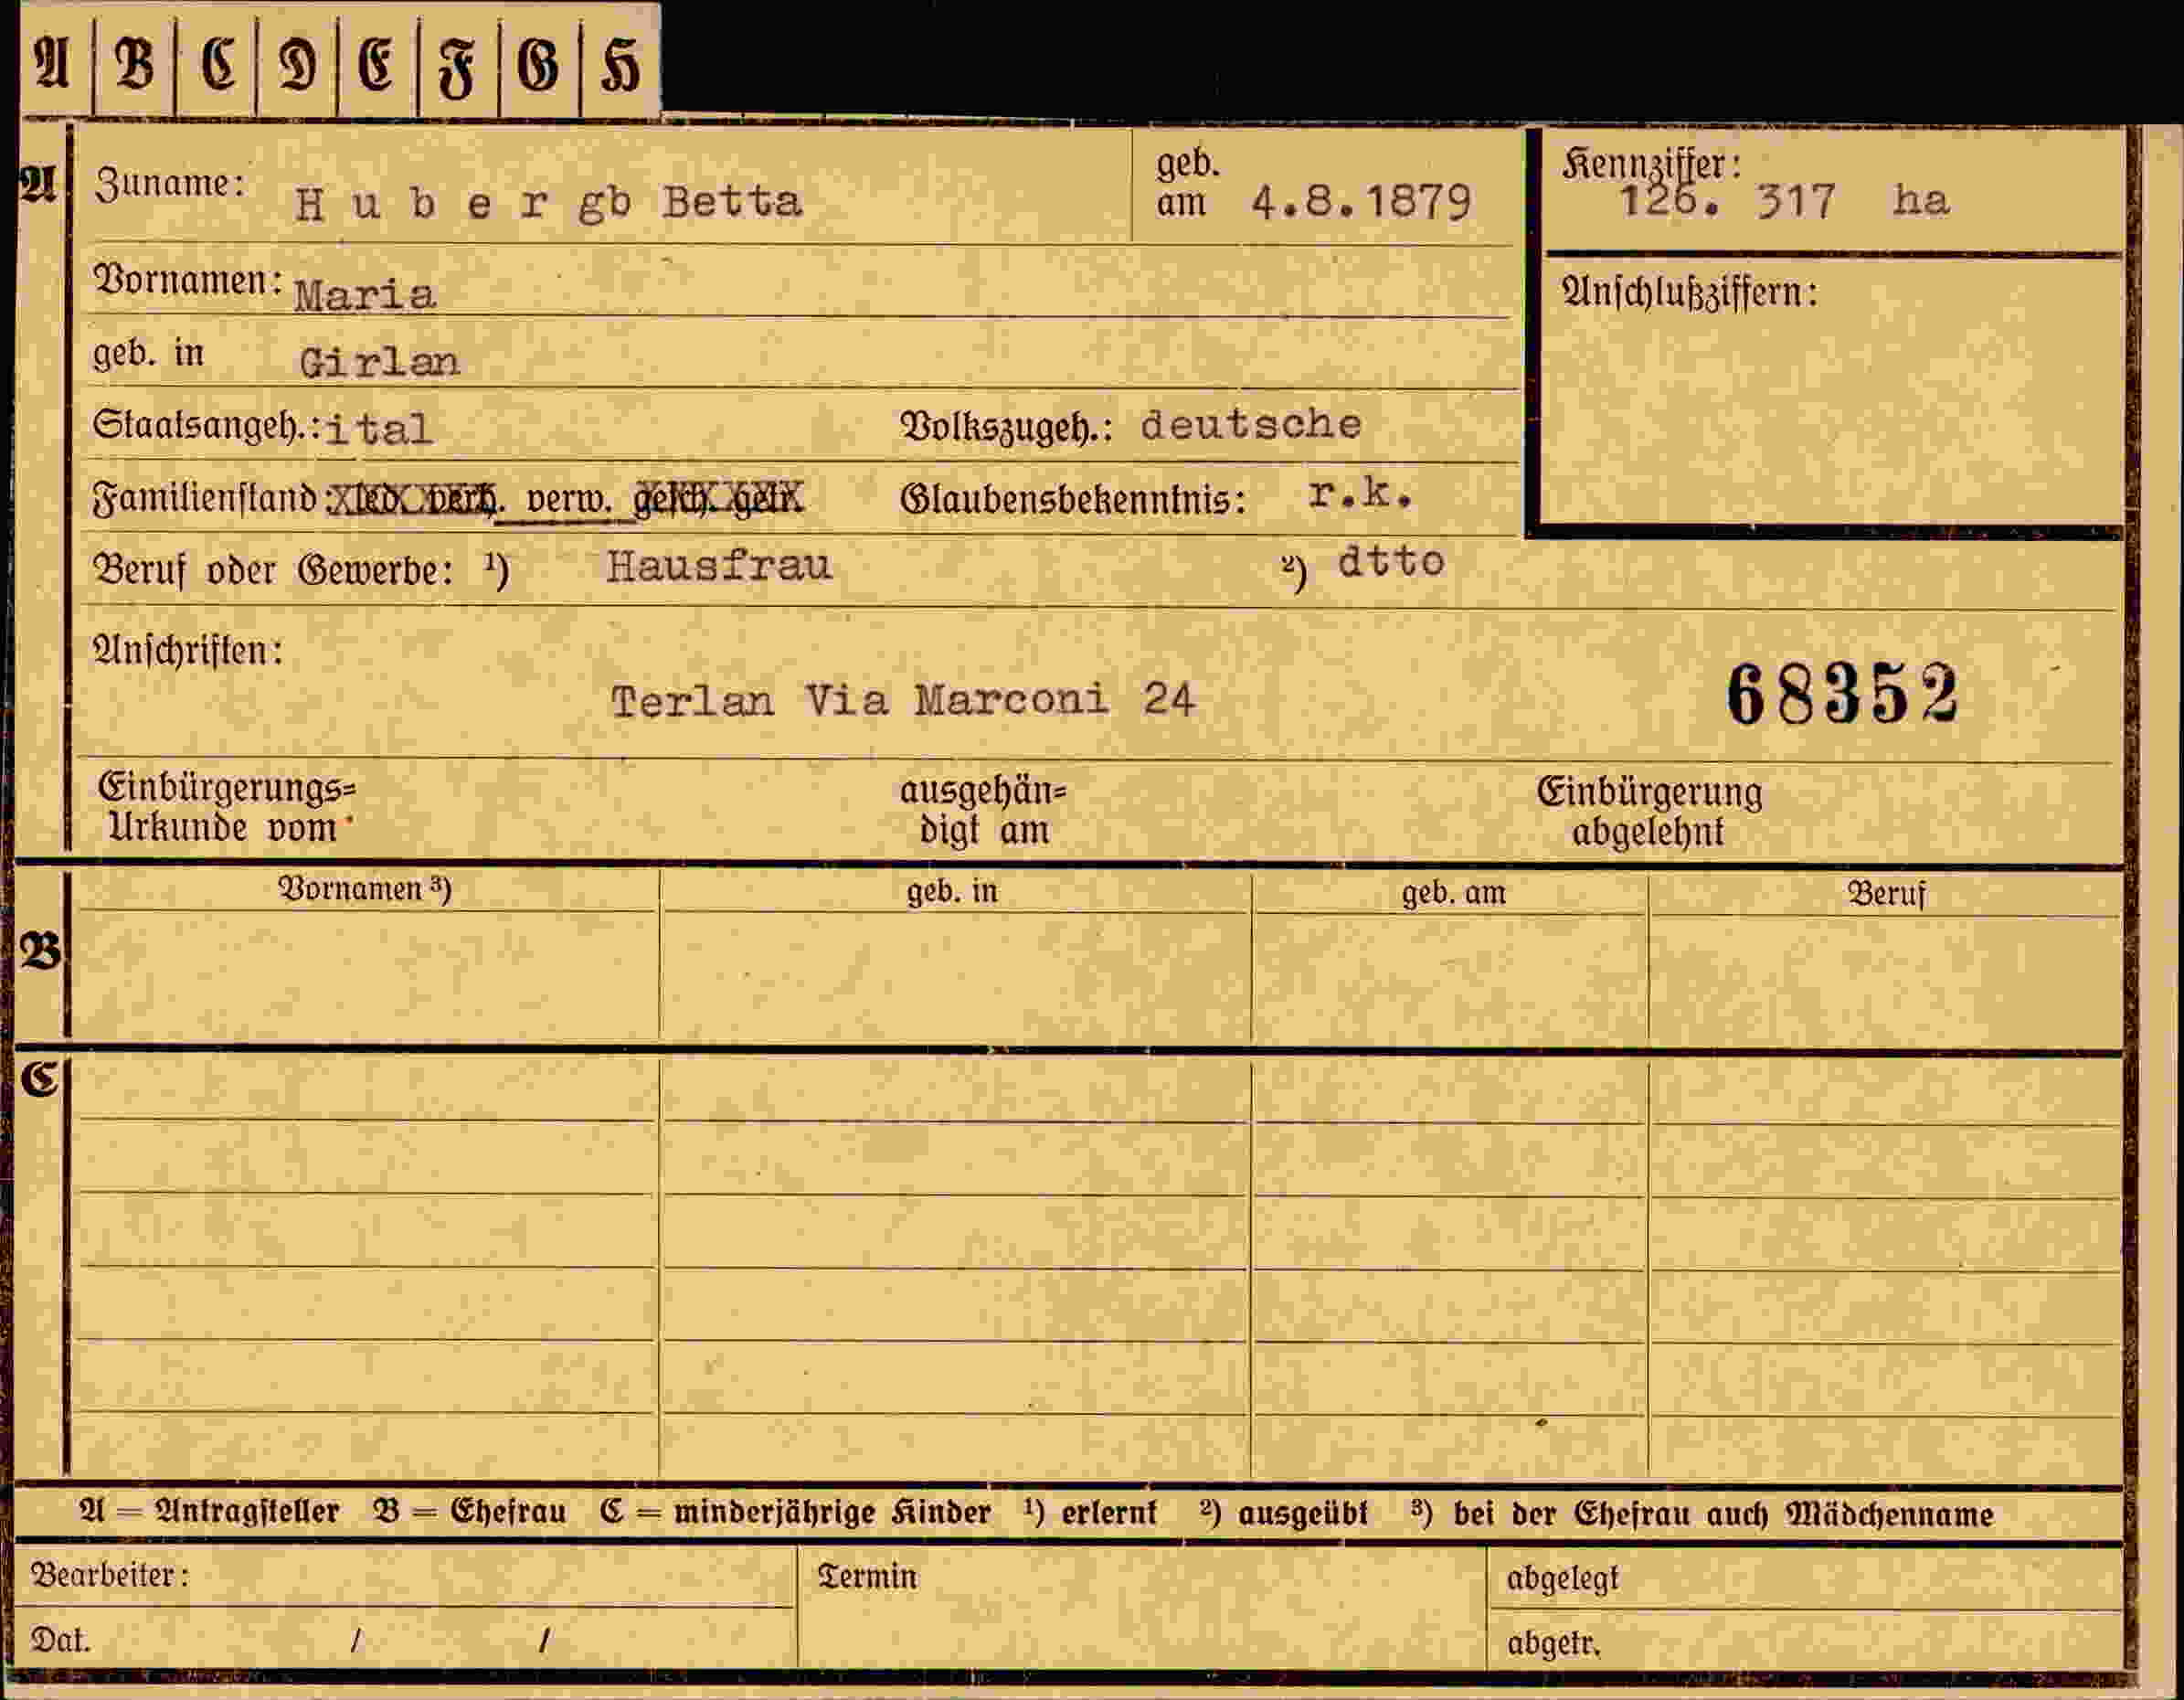 A B C D E F G H
A Zuname: Huber gb Betta geb. am 4.8.1879 Kennziffer: 126. 317 ha
Vornamen: Maria Anschlußziffern:
geb. in Girlan
Staatsangeh.: ital Volkszugeh.: deutsche
Familienstand: led. verh. verw. gesch. getr. Glaubensbekenntnis: r.k.
Beruf oder Gewerbe: ¹) Hausfrau ²) dtto
Anschriften:
Terlan Via Marconi 24 68352
Einbürgerungs= ausgehän= Einbürgerung
Urkunde vom digt am abgelehnt
Vornamen ³) geb. in geb. am Beruf
B
C
A = Antragsteller B = Ehefrau C = minderjährige Kinder ¹) erlernt ²) ausgeübt ³) bei der Ehefrau auch Mädchenname
Bearbeiter: Termin abgelegt
Dat. / / abgetr.